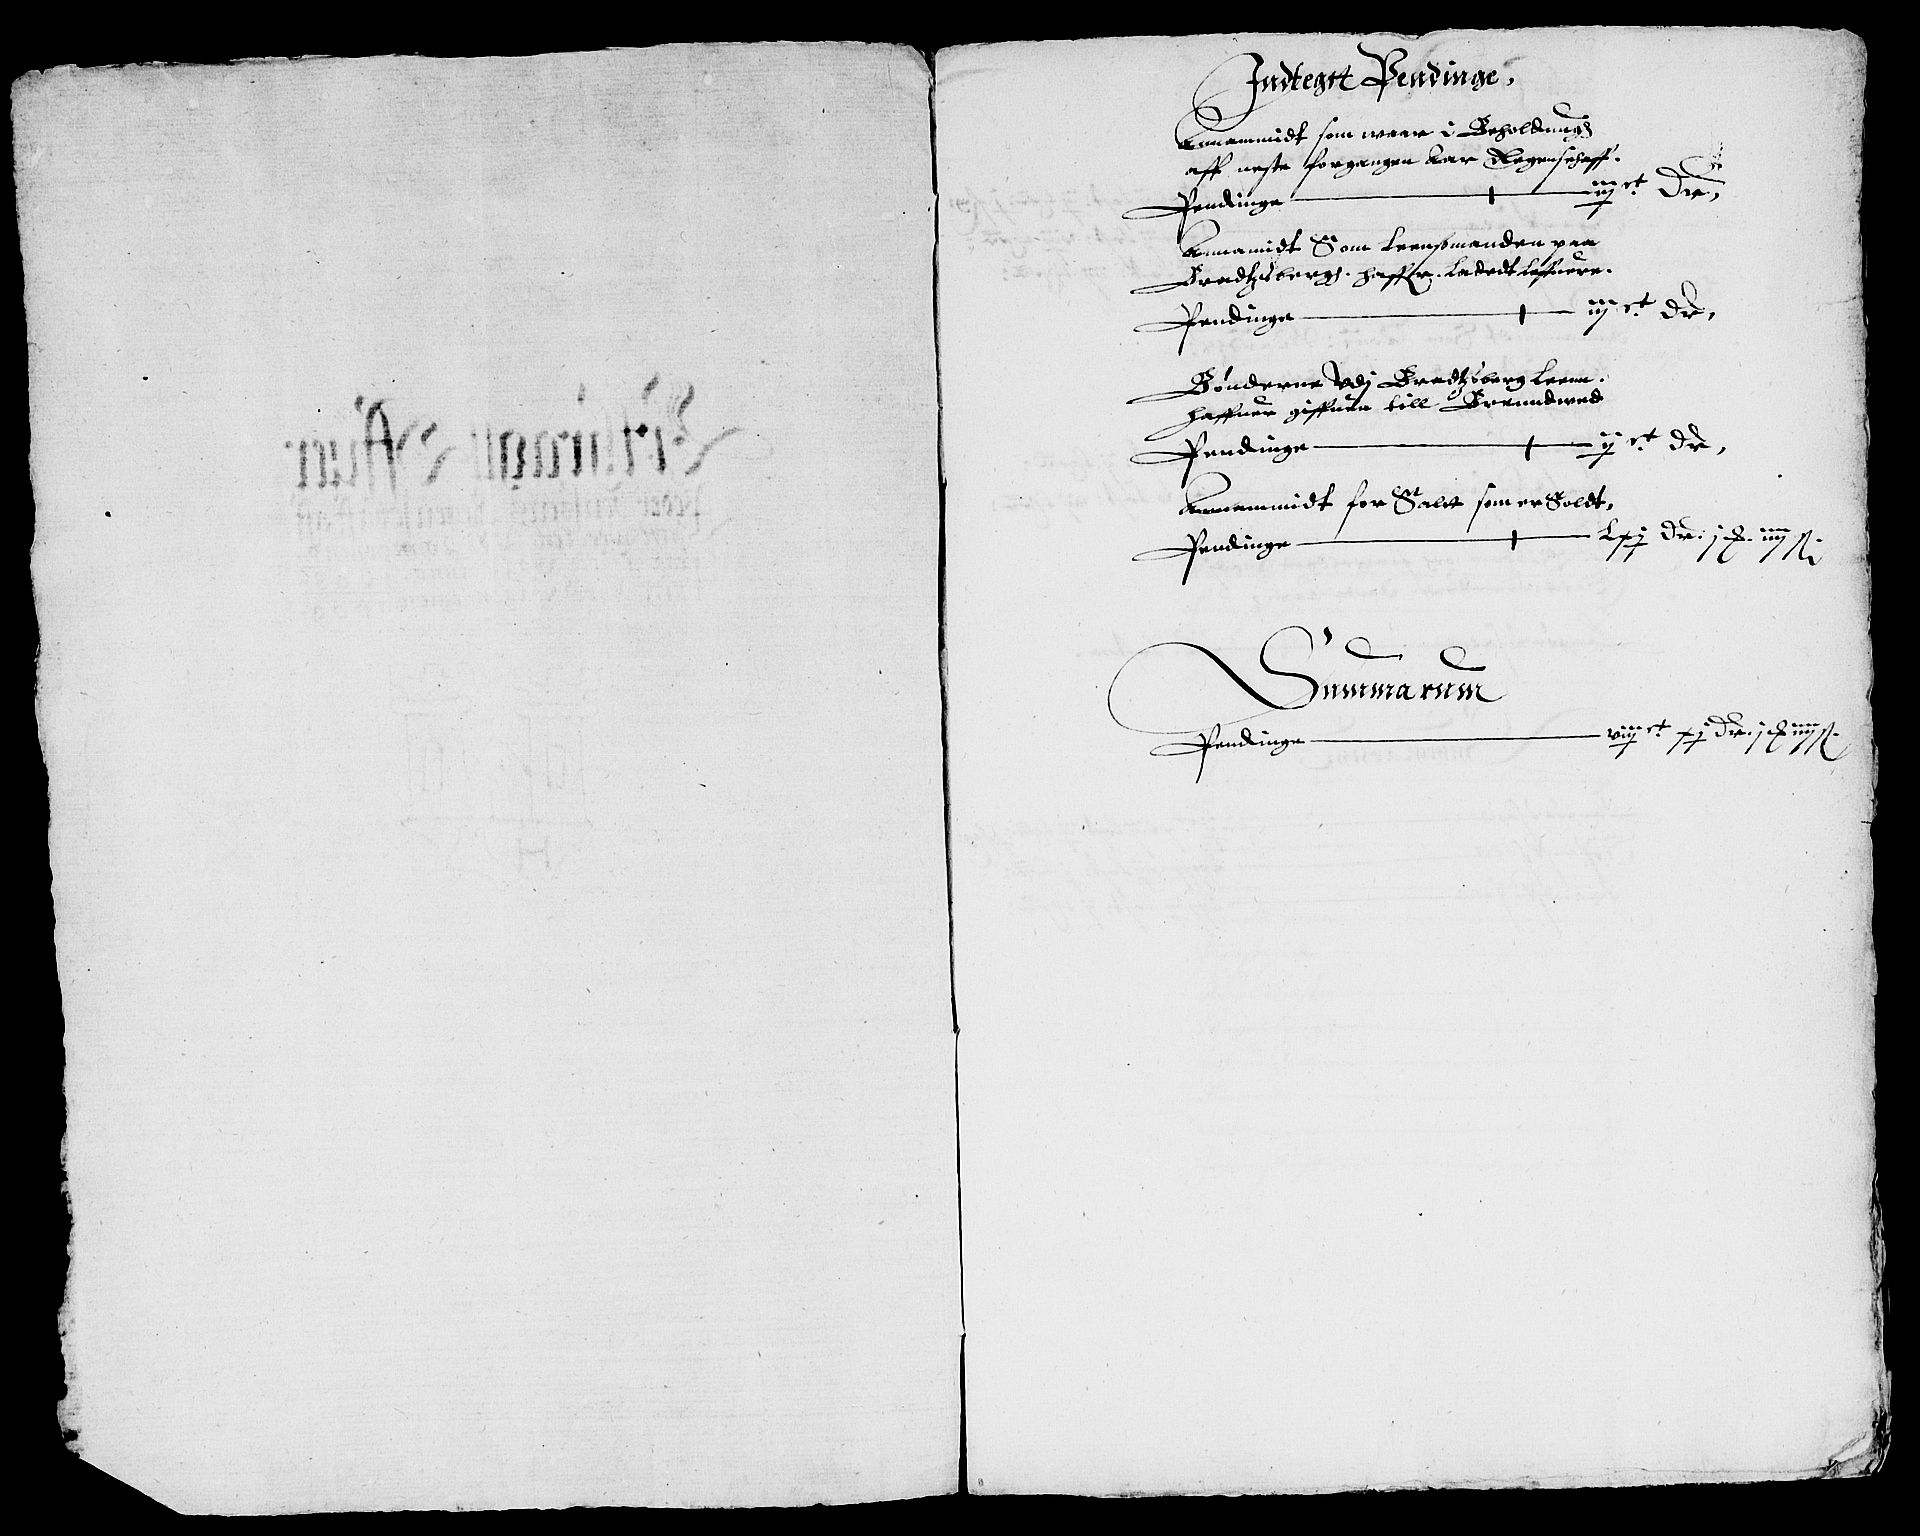 Indtegtt Pendinge,
Annammidt som waar i Beholdningh
aff neste forgangen Aar Regenschaff.
Pendinge iijct dlr,
Annamidt Som Leensmanden paa
Bradtzbergh. haffr. Ladedt Leffuere.
Pendinge iijct dlr,
Bønderne Vdj Bradtzberg Leenn.
haffuer giffuen till Brenndwed
Pendinge ijct dlr,
Annammidt for Salt som er Soldt,
Pendinge Lxj dlr. j ℔. iiij ß.
Summarum
Pendinge viijct xj dlr. j ℔ iiij ß.